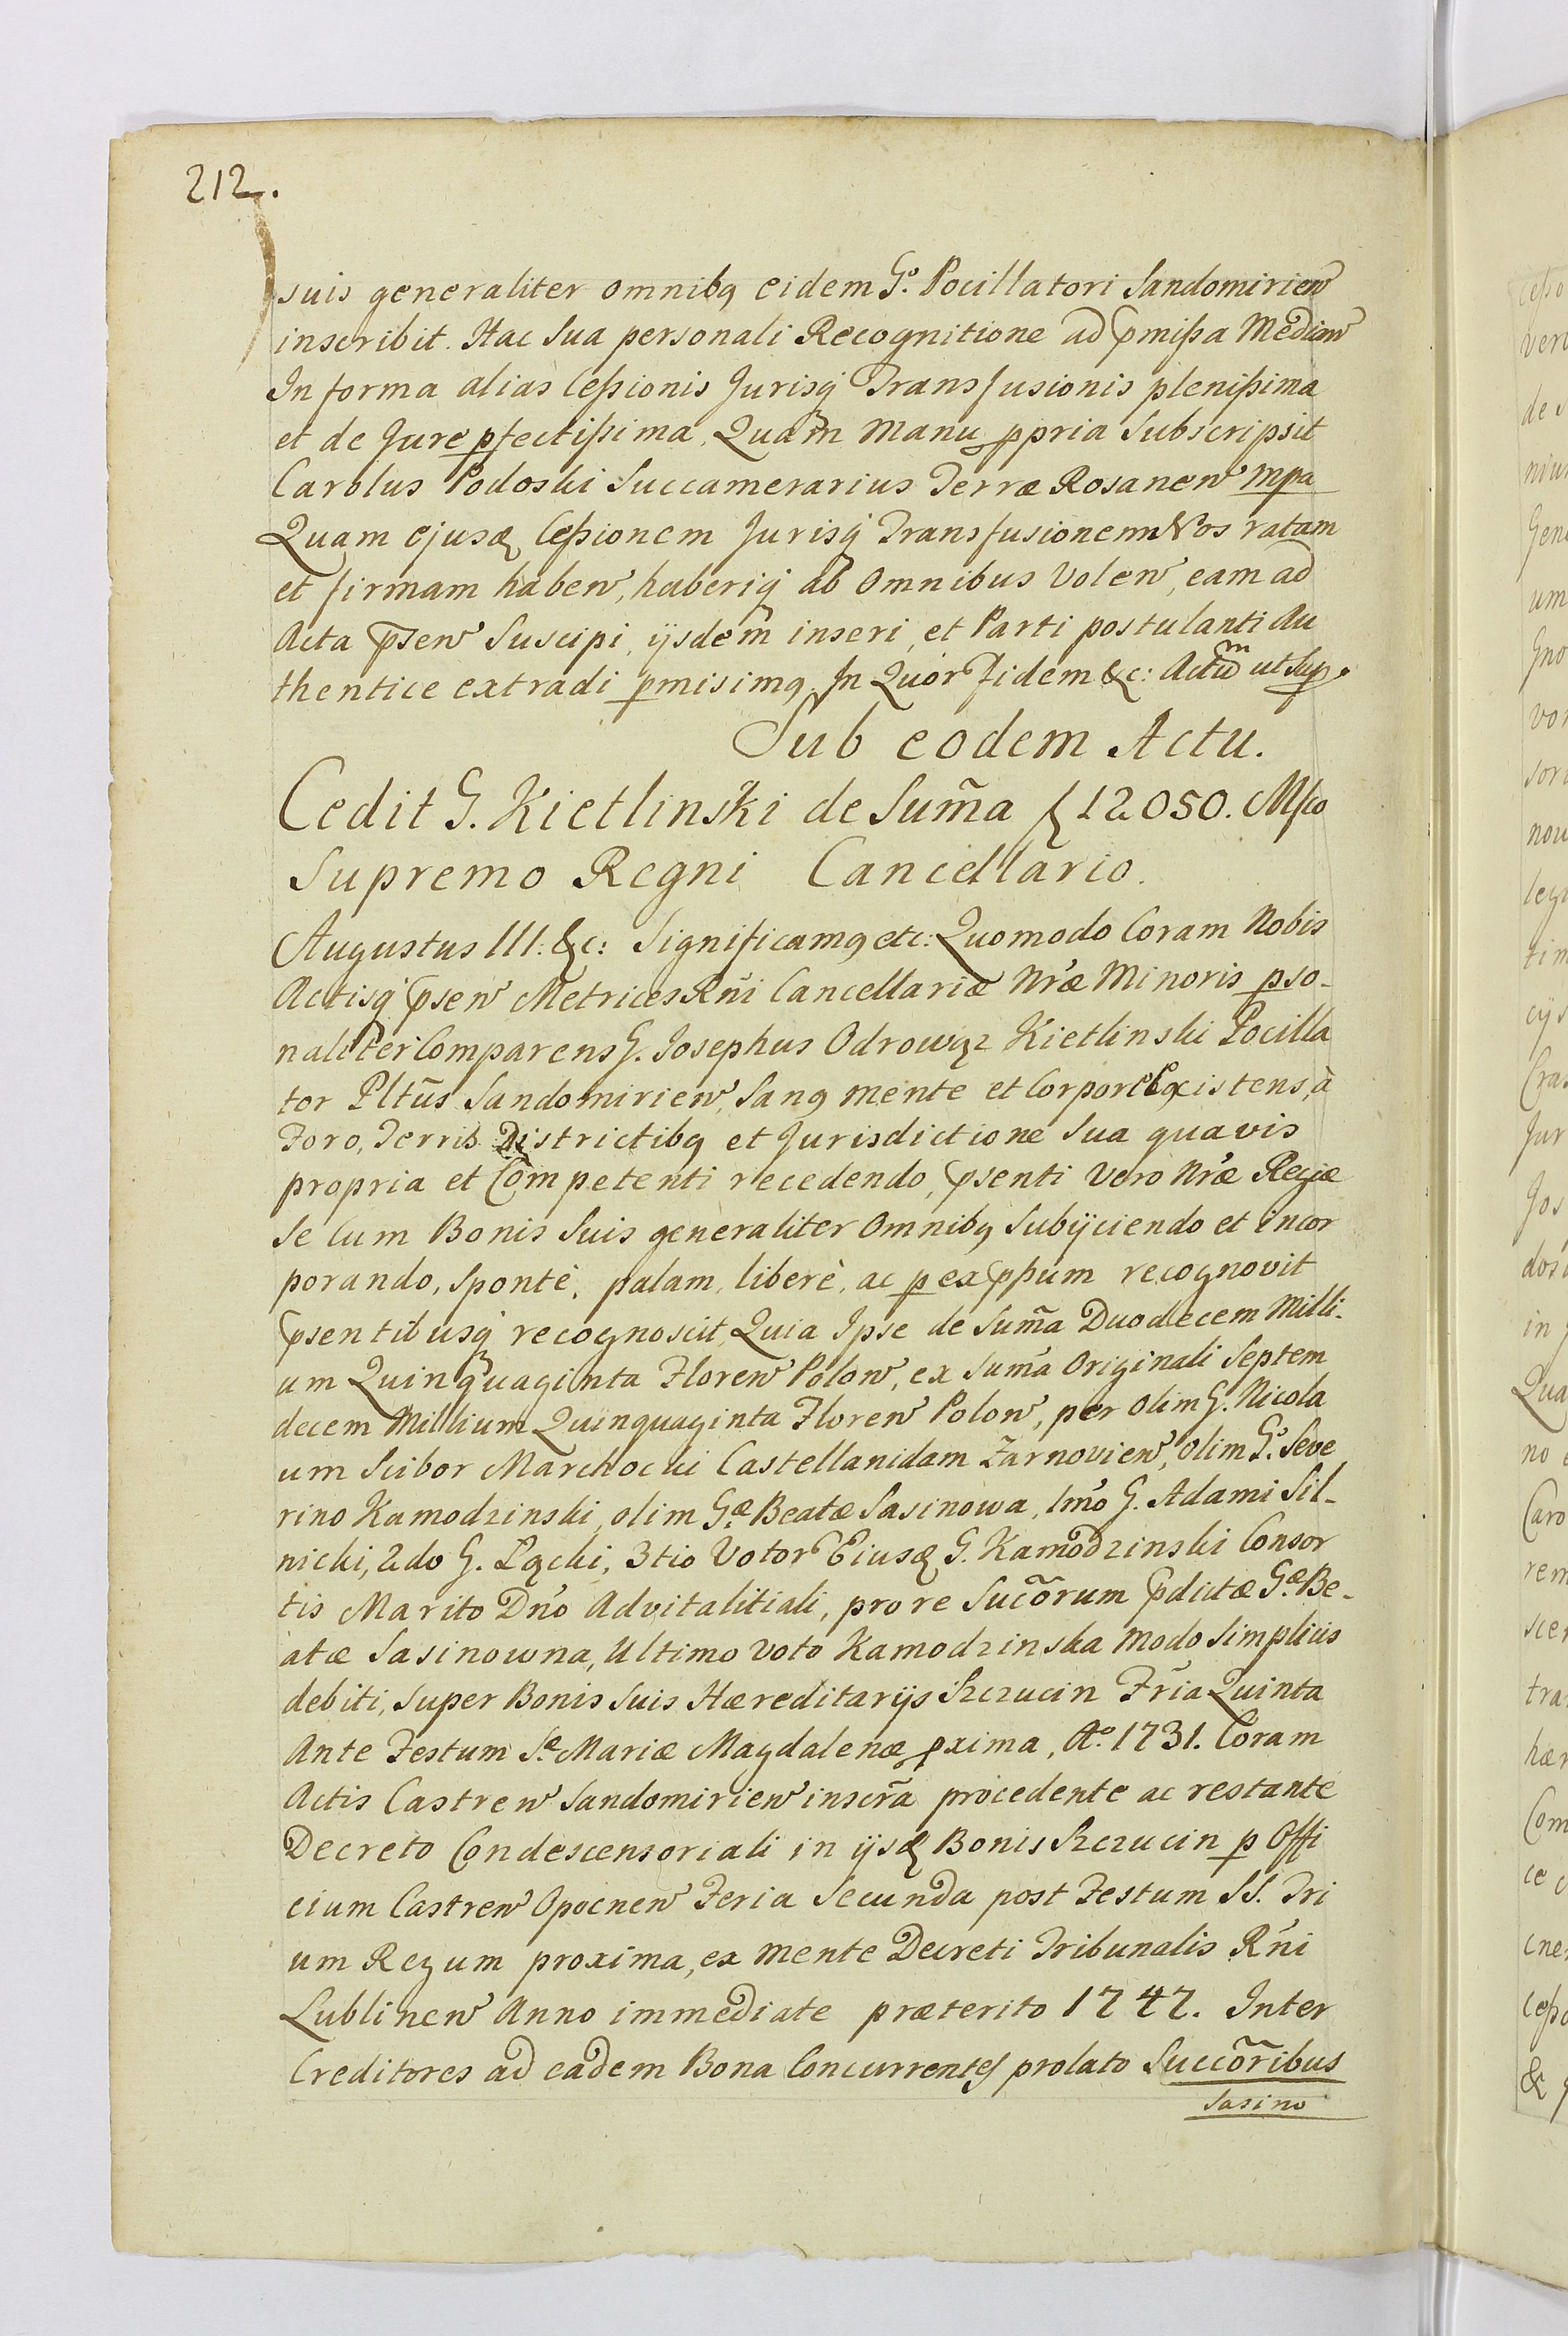 212.
suis generaliter omnibq eidem G.o Pocillatori Sandomirien
inscribit. Hac Sua personali Recognitione ad pmißa Median
In forma alias Ceßionis Jurisq Transfusionis plenißima
et de Jure pfectißima, Quam Manu ppria Subscripsit
Carolus Podoski Succamerarius Terræ Rosanen mpa
Quam ejusq Ceßionem Jurisq Transfusionem Nos ratam
et firmam haben, haberiq ab Omnibus Volen, eam ad
Acta psen Suscipi, ijsdem inseri, et Parti postulanti Au
thentice extradi pmisimq. In Quor Fidem &c: Actum ut Sup.
Sub eodem Actu.
Cedit G. Kietlinski de Sum̃a f 12050. Mfco
Supremo Regni Cancellario.
Augustus III. &c: Significamq etc: Quomodo Coram Nobis
Actisq psen Metrices Rñi Cancellariæ Nræ Minoris pso-
naliter Comparens G. Josephus Odrowąz Kietlinski Pocilla
tor Pltũs Sandomirien, Sanq mente et Corpore Existens, à
Foro, Terris Districtibq et Jurisdictione Sua quavis
propria et Competenti recedendo, psenti Vero Nræ Regiæ
Se Cum Bonis Suis generaliter Omnibq Subijciendo et incor
porando, Sponte, palam, liberè, ac p expßum recognovit
psentibusq recognoscit, Quia Ipse de Sum̃a Duodecem Milli-
um Quinquaginta Floren Polon, ex Suma Originali Septem
decem Millium Quinquaginta Floren Polon, per olim G. Nicola
um Scibor Marchocki Castellanidam Zarnovien, olim G.o Seve
rino Kamodzinski, olim G.æ Beatæ Sasinowa, 1mo G. Adami Sil-
nicki, 2do G. Łącki, 3tio Votor Eiusq G. Kamodzinski Consor
tis Marito Dño Advitalitiali, pro re Sucõrum pdictæ G.æ Be-
atæ Sasinowna, Ultimo Voto Kamodzinska Modo Simplicis
debiti, Super Bonis Suis Hæreditarijs Szczucin Fria Quinta
Ante Festum S.æ Mariæ Magdalenæ pxima, A.o 1731. Coram
Actis Castren Sandomirien inscrã procedente ac restante
Decreto Condescensoriali in ijsq Bonis Szczucin p Offi
cium Castren Opocnen Feria Secunda post Festum SS. Tri
um Regum proxima, ex Mente Decreti Tribunalis Rñi
Lublinen Anno immediate præterito 1747. Inter
Creditores ad eadem Bona Concurrentes prolato Succõribus
Sasino